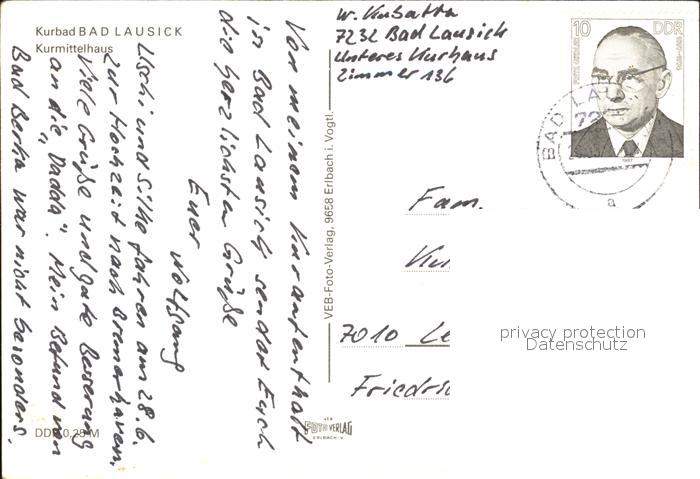 Kurbad BAD LAUSICK
Kurmittelhaus
W. Kubatta
7232 Bad Lausick
Unteres Kurhaus
Zimmer 136
10 DDR
1987
BAD LAU
72
a
Von meinem Kuraufenthalt
in Bad Lausick sendet Euch
die herzlichsten Grüße
Euer Wolfgang
Uschi und Silke fahren am 28.6.
zur Hochzeit nach Bremerhaven.
Viele Grüße und gute Besserung
an die "Dadda". Mein Befund von
Bad Berka war nicht besonders.
VEB-Foto-Verlag, 9658 Erlbach i. Vogtl.
Fam.
7010 Le
Friedric
privacy protection
Datenschutz
DDR 0,25 M
VEB
FOTO VERLAG
ERLBACH-V.